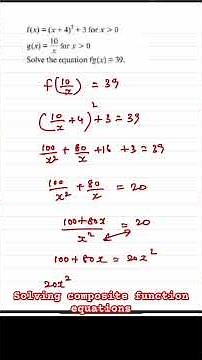 f(x) = (x + 4)² + 3 for x > 0
g(x) = 10/x for x > 0
Solve the equation fg(x) = 39.
f(10/x) = 39
(10/x + 4)² + 3 = 39
100/x² + 80/x + 16 + 3 = 39
100/x² + 80/x = 20
100 + 80x / x² = 20
100 + 80x = 20x²
20x²
Solving composite function
equations